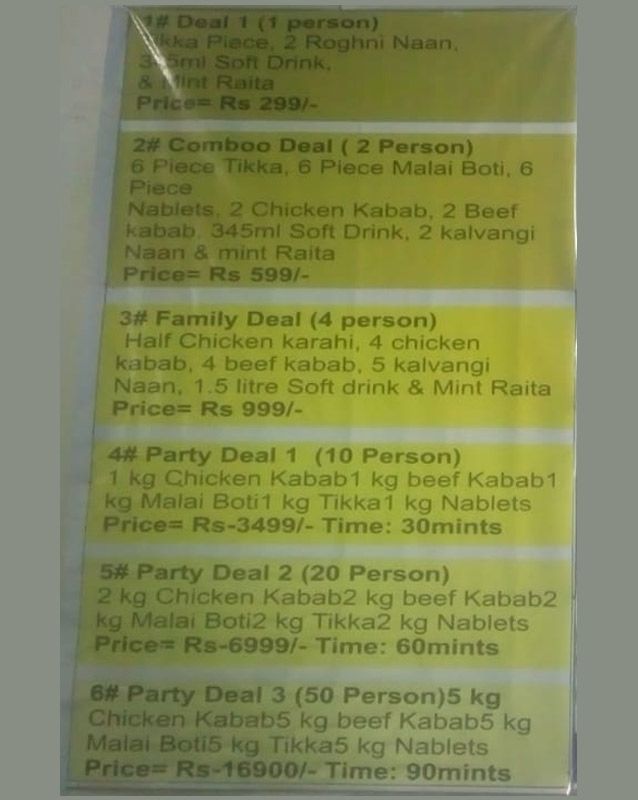 1# Deal 1 (1 person)
Tikka Piece, 2 Roghni Naan,
345ml Soft Drink,
& Mint Raita
Price= Rs 299/-
2# Comboo Deal ( 2 Person)
6 Piece Tikka, 6 Piece Malai Boti, 6
Piece
Nablets, 2 Chicken Kabab, 2 Beef
kabab. 345ml Soft Drink, 2 kalvangi
Naan & mint Raita
Price= Rs 599/-
3# Family Deal (4 person)
Half Chicken karahi, 4 chicken
kabab, 4 beef kabab, 5 kalvangi
Naan, 1.5 litre Soft drink & Mint Raita
Price= Rs 999/-
4# Party Deal 1 (10 Person)
1 kg Chicken Kabab1 kg beef Kabab1
kg Malai Boti1 kg Tikka1 kg Nablets
Price= Rs-3499/- Time: 30mints
5# Party Deal 2 (20 Person)
2 kg Chicken Kabab2 kg beef Kabab2
kg Malai Boti2 kg Tikka2 kg Nablets
Price= Rs-6999/- Time: 60mints
6# Party Deal 3 (50 Person)5 kg
Chicken Kabab5 kg beef Kabab5 kg
Malai Boti5 kg Tikka5 kg Nablets
Price= Rs-16900/- Time: 90mints